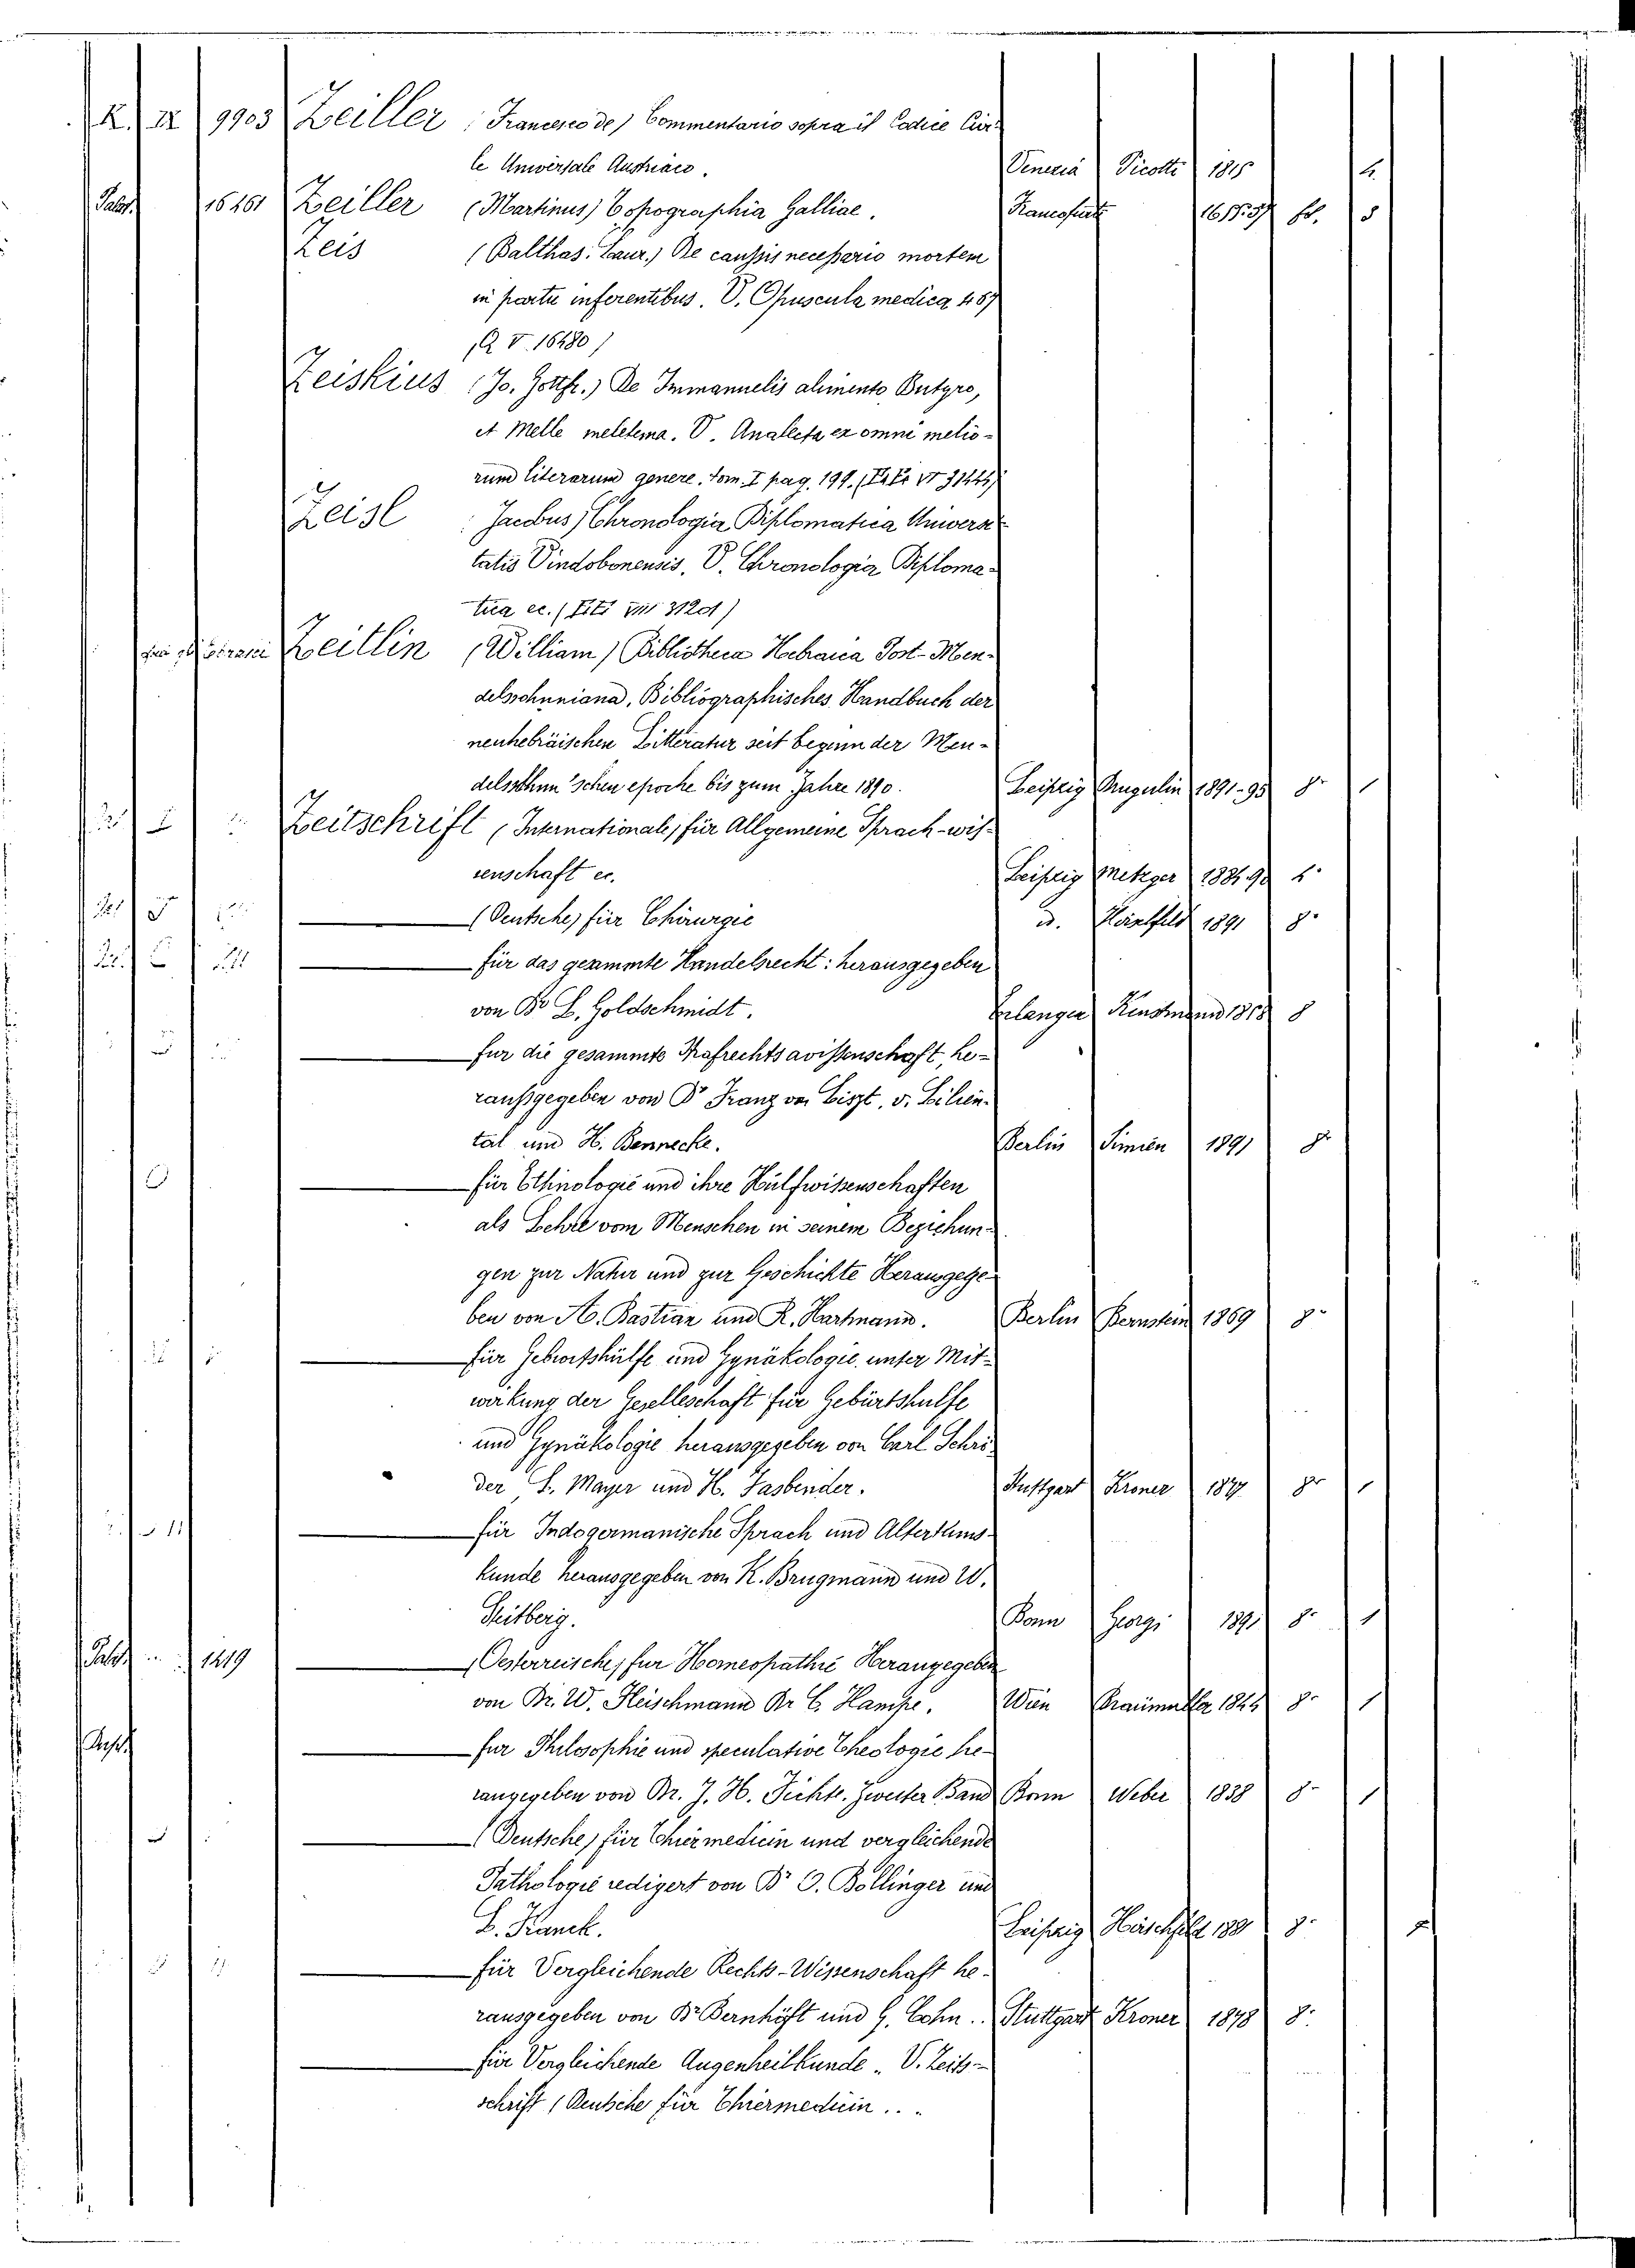 K. IX 9903 Zeiller (Francesco de) Commentario sopra il Codice Civi-
le Universale Austriaco. Venezia Picotti 1815 4.
Palat. 16461 Zeiller (Martinus) Topographia Galliae. Francofurti fo. 5
Zeis (Balthas. Laur.) De caussis necessario mortem
in partu inferentibus. V. Opuscula medica 487
(Q V. 16480)
Zeiskius (Jo. Gottfr.) De Immanuelis alimento Butyro,
et Melle meletema. V. Analecta ex omni melio-
rum literarum genere. tom. I pag. 199.
Zeisl Jacobus) Chronologia Diplomatica Universi-
tatis Vindobonensis. V. Chronologia Diploma-
tica ec.
Zeitlin (William) Bibliotheca Hebraica Post-Men-
delssohniana, Bibliographisches Handbuch der
neuhebräischen Litteratur seit beginn der Men-
delssohn'schen epoche bis zum Jahre 1890. Leipzig 1891-95 8° 1
Zeitschrift (Internationale) für Allgemeine Sprach-wis-
senschaft ec. Leipzig Metzger 4°
(Deutsche) für Chirurgie 1891 8°
für das gesammte Handelsrecht: herausgegeben
von Dr L. Goldschmidt. Erlangen 8
fur die gesammte Strafrechtsavissenschaft, he-
raussgegeben von Dr Franz von Liszt, v. Lilien-
tal und H. Bennecke. Berlin 1891 8°
für Ethnologie und ihre Hülfwissenschaften
als Lehre vom Menschen in seinem Beziehun-
gen zur Natur und zur Geschichte Herausgege-
ben von A. Bastian und R. Hartmann. Berlin Bernstein 1869 8°
für Geburtshülfe und Gynäkologie, unter Mit-
wirkung der Geselleschaft für Gebürtshulfe
und Gynäkologie herausgegeben von Carl Schrö-
der, L. Mayer und H. Fasbender. Stuttgart Kroner 1877 8° 1
für Indogermanische Sprach und Altertums-
kunde herausgegeben von K. Brugmann und W.
Streitberg. Bonn Georgi 1891 8° 1
Palat. 1219 (Oesterreische) fur Homeopathie Herangegeben
von Dr. W. Fleischmann Dr C. Hampe. Wien Braumuller 1844 8° 1
fur Philosophie und speculative Theologie he-
rangegeben von Dr. J. H. Fichte. Zweiter Band Bonn Weber 1838 8° 1
(Deutsche) für Thiermedicin und vergleichende
Pathologie redigert von Dr O. Bollinger und
L. Franck. Leipzig 8°
für Vergleichende Rechts-Wissenschaft he-
rausgegeben von Dr Bernhöft und G. Cohn. Stuttgart Kroner 1878 8°
für Vergleichende Augenheilkunde. V. Zeits-
schrift (Deutsche für Thiermedicin...